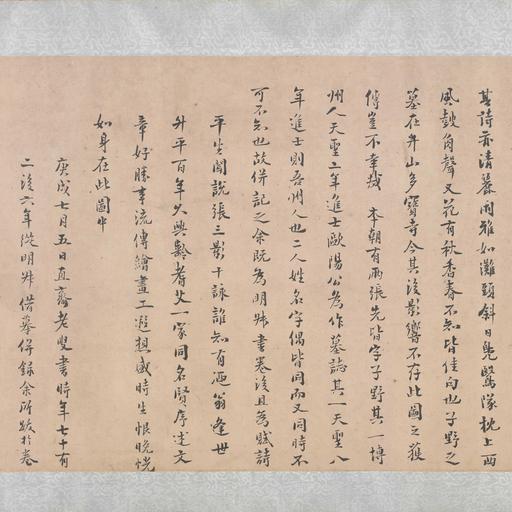 其詩亦清麗閒雅如灘頭斜日鳧鷖隊枕上西
風鼓角聲又花有秋香春不知皆佳句也子野之
墓在弁山多寶寺今其後影響不存此圖之獲
傳豈不幸哉 本朝有兩張先皆字子野其一博
州人天聖二年進士歐陽公為作墓誌其一天聖八
年進士則吾州人也二人姓名字偶皆同而又同時不
可不知也故併記之余既為明叔書卷後且為賦詩
平生聞說張三影十詠誰知有乃翁逢世
升平百年久與齡耆艾一家同名賢序述文
章好勝事流傳繪畫工遐想盛時生恨晚恍
如身在此圖中
庚戌七月五日直齋老叟書時年七十有
二後六年從明叔借摹併錄余所跋於卷